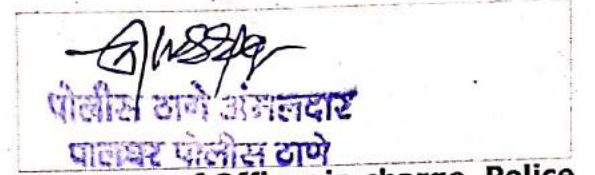 पोलीस ठाणे अंमलदार
पालघर पोलीस ठाणे
Officer in charge, Police